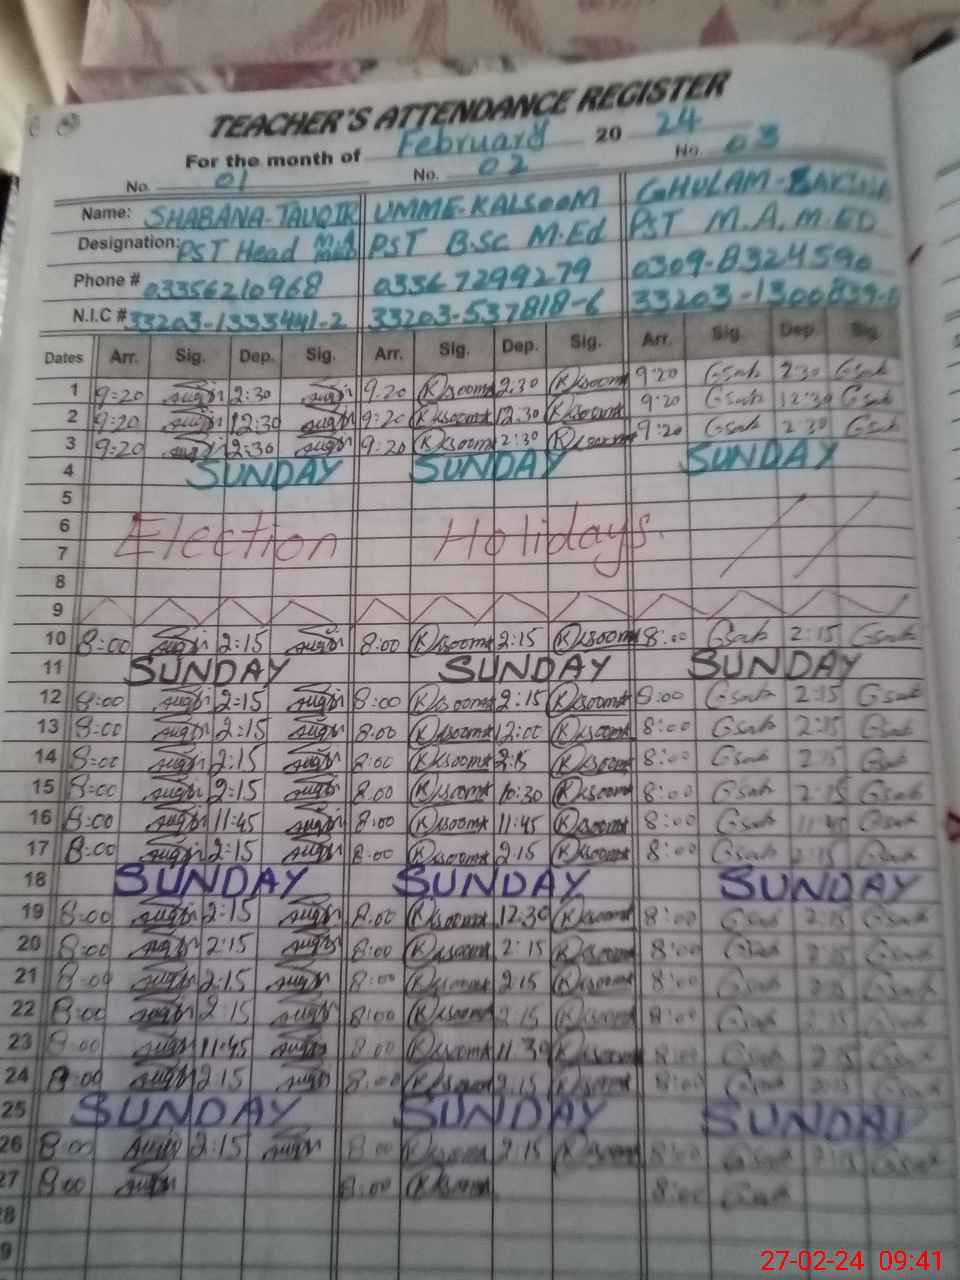 TEACHER'S ATTENDANCE REGISTER
For the month of February 20 24
No. 01 No. 02 No. 03
Name: SHABANA-TAUQIR UMME-KALSOOM GHULAM-SAKINA
Designation: PST Head M.A PST B.Sc M.Ed PST M.A, M.ED
Phone # 03356210968 0336 7299279 0309-8324590
N.I.C # 33203-1333441-2 33203-537818-6 33203-1300839-
Dates Arr. Sig. Dep. Sig. Arr. Sig. Dep. Sig. Arr. Sig. Dep. Sig.
1 9:20 2:30 9:20 Klsoom 2:30 Klsoom 9:20 Gsab 2:30 Gsab
2 9:20 12:30 9:20 Klsoom 12:30 Klsoom 9:20 Gsab 12:30 Gsab
3 9:20 2:30 9:20 Klsoom 2:30 Klsoom 9:20 Gsab 2:30 Gsab
4 SUNDAY SUNDAY SUNDAY
5
6 Election Holidays.
7
8
9
10 8:00 2:15 8:00 Klsoom 2:15 Klsoom 8:00 Gsab 2:15 Gsab
11 SUNDAY SUNDAY SUNDAY
12 8:00 2:15 8:00 Klsoom 2:15 Klsoom 8:00 Gsab 2:15 Gsab
13 8:00 2:15 8:00 Klsoom 12:00 Klsoom 8:00 Gsab 2:15 Gsab
14 8:00 2:15 8:00 Klsoom 2:15 Klsoom 8:00 Gsab 2:15 Gsab
15 8:00 2:15 8:00 Klsoom 10:30 Klsoom 8:00 Gsab 2:15 Gsab
16 8:00 11:45 8:00 Klsoom 11:45 Klsoom 8:00 Gsab 11:45 Gsab
17 8:00 2:15 8:00 Klsoom 2:15 Klsoom 8:00 Gsab 2:15 Gsab
18 SUNDAY SUNDAY SUNDAY
19 8:00 2:15 8:00 Klsoom 12:30 Klsoom 8:00 Gsab 2:15 Gsab
20 8:00 2:15 8:00 Klsoom 2:15 Klsoom 8:00 Gsab 2:15 Gsab
21 8:00 2:15 8:00 Klsoom 2:15 Klsoom 8:00 Gsab 2:15 Gsab
22 8:00 2:15 8:00 Klsoom 2:15 Klsoom 8:00 Gsab 2:15 Gsab
23 8:00 11:45 8:00 Klsoom 11:30 Klsoom 8:00 Gsab 2:15 Gsab
24 8:00 2:15 8:00 Klsoom 2:15 Klsoom 8:00 Gsab 2:15 Gsab
25 SUNDAY SUNDAY SUNDAY
26 8:00 2:15 8:00 Klsoom 2:15 Klsoom 8:00 Gsab 2:15 Gsab
27 8:00 8:00 Klsoom 8:00 Gsab
28
9
27-02-24 09:41